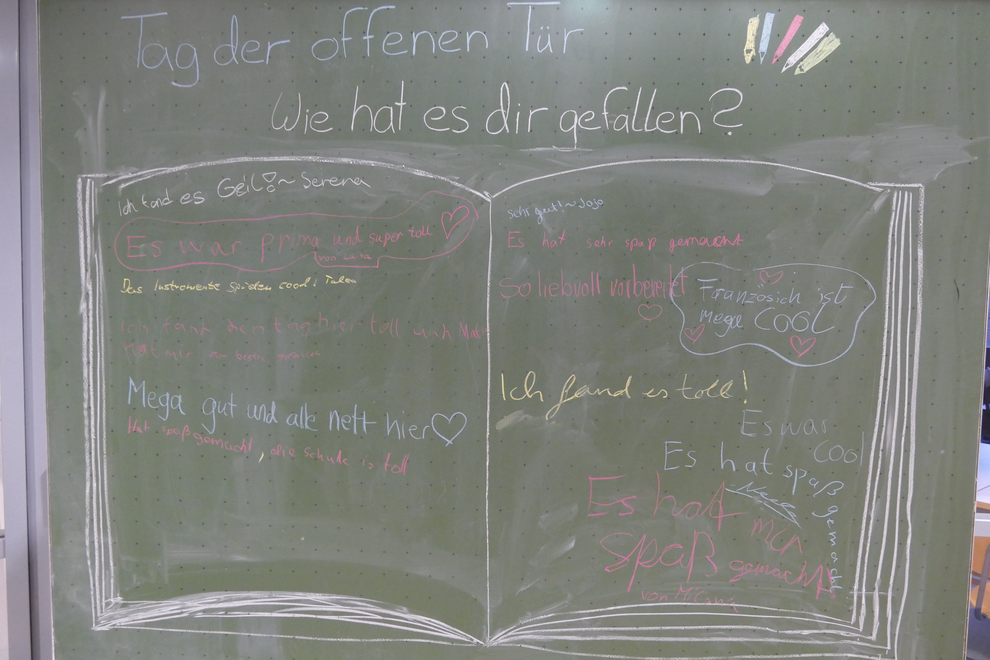 Tag der offenen Tür
Wie hat es dir gefallen?
Ich fand es Geil!~ Serena
Es war prima und super toll
von
Das Instrumente spielen cool!
Ich fand den tag hier toll und
Hat mir am besten gefallen
Mega gut und alle nett hier
Hat spaß gemacht, die schule is toll
sehr gut!~Jojo
Es hat sehr spaß gemacht
So liebvoll vorbereitet
Französich ist
mega COOL
Ich fand es toll!
Es war
cool
Es hat spaß gemacht
Es hat
spaß gemacht!
von